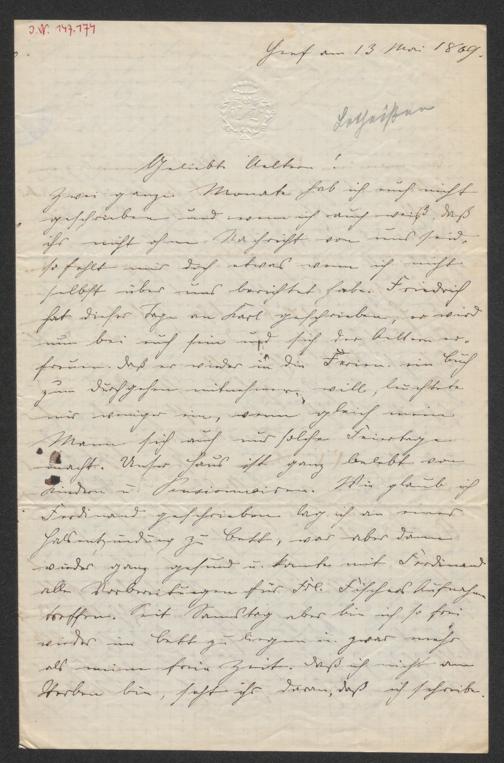 J.N. 147.174
Genf am 13 Mai 1869.
Letheißen
Geliebte Aeltern!
Zwei ganze Monate hab ich euch nicht
geschrieben und wenn ich auch weiß, daß
ihr nicht ohne Nachricht von uns seid,
so fehlt mir doch etwas wenn ich nicht
selbst über uns berichtet habe. Friedrich
hat dieser Tage an Karl geschrieben, er wird
nun bei euch sein und sich der Aeltern er-
freuen. Daß er wieder in den Ferien ein Buch
zum durchgehen mitnehmen will, leuchtete
mir weniger ein, wenn gleich mein
Mann sich auch nur solche Feiertage
macht. Unser Haus ist ganz belebt von
Kindern u. Pensionairen. Wie glaub ich
Ferdinand geschrieben lag ich an einer
Halsentzündung zu Bett, war aber dann
wieder ganz gesund u. konnte mit Ferdinand
alle Vorbereitungen für Frl. Fischers Aufnahme
treffen. Seit Samstag aber bin ich so frei
wieder im Bett zu liegen u. zwar mehr
als meine freie Zeit. Daß ich nicht am
Sterben bin, seht ihr daran, daß ich schreibe.